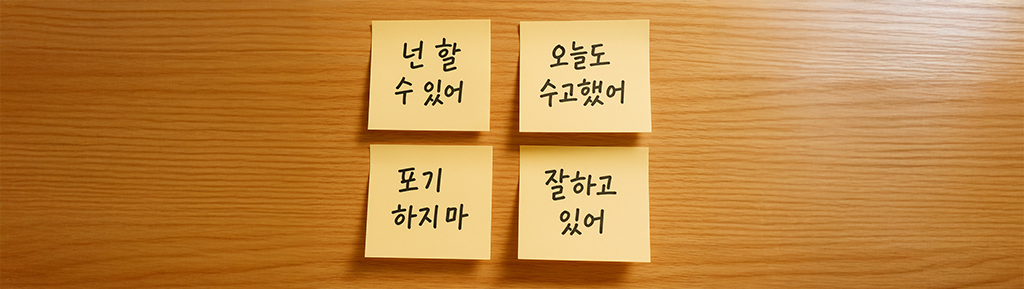 넌 할
수 있어
오늘도
수고했어
포기
하지 마
잘하고
있어